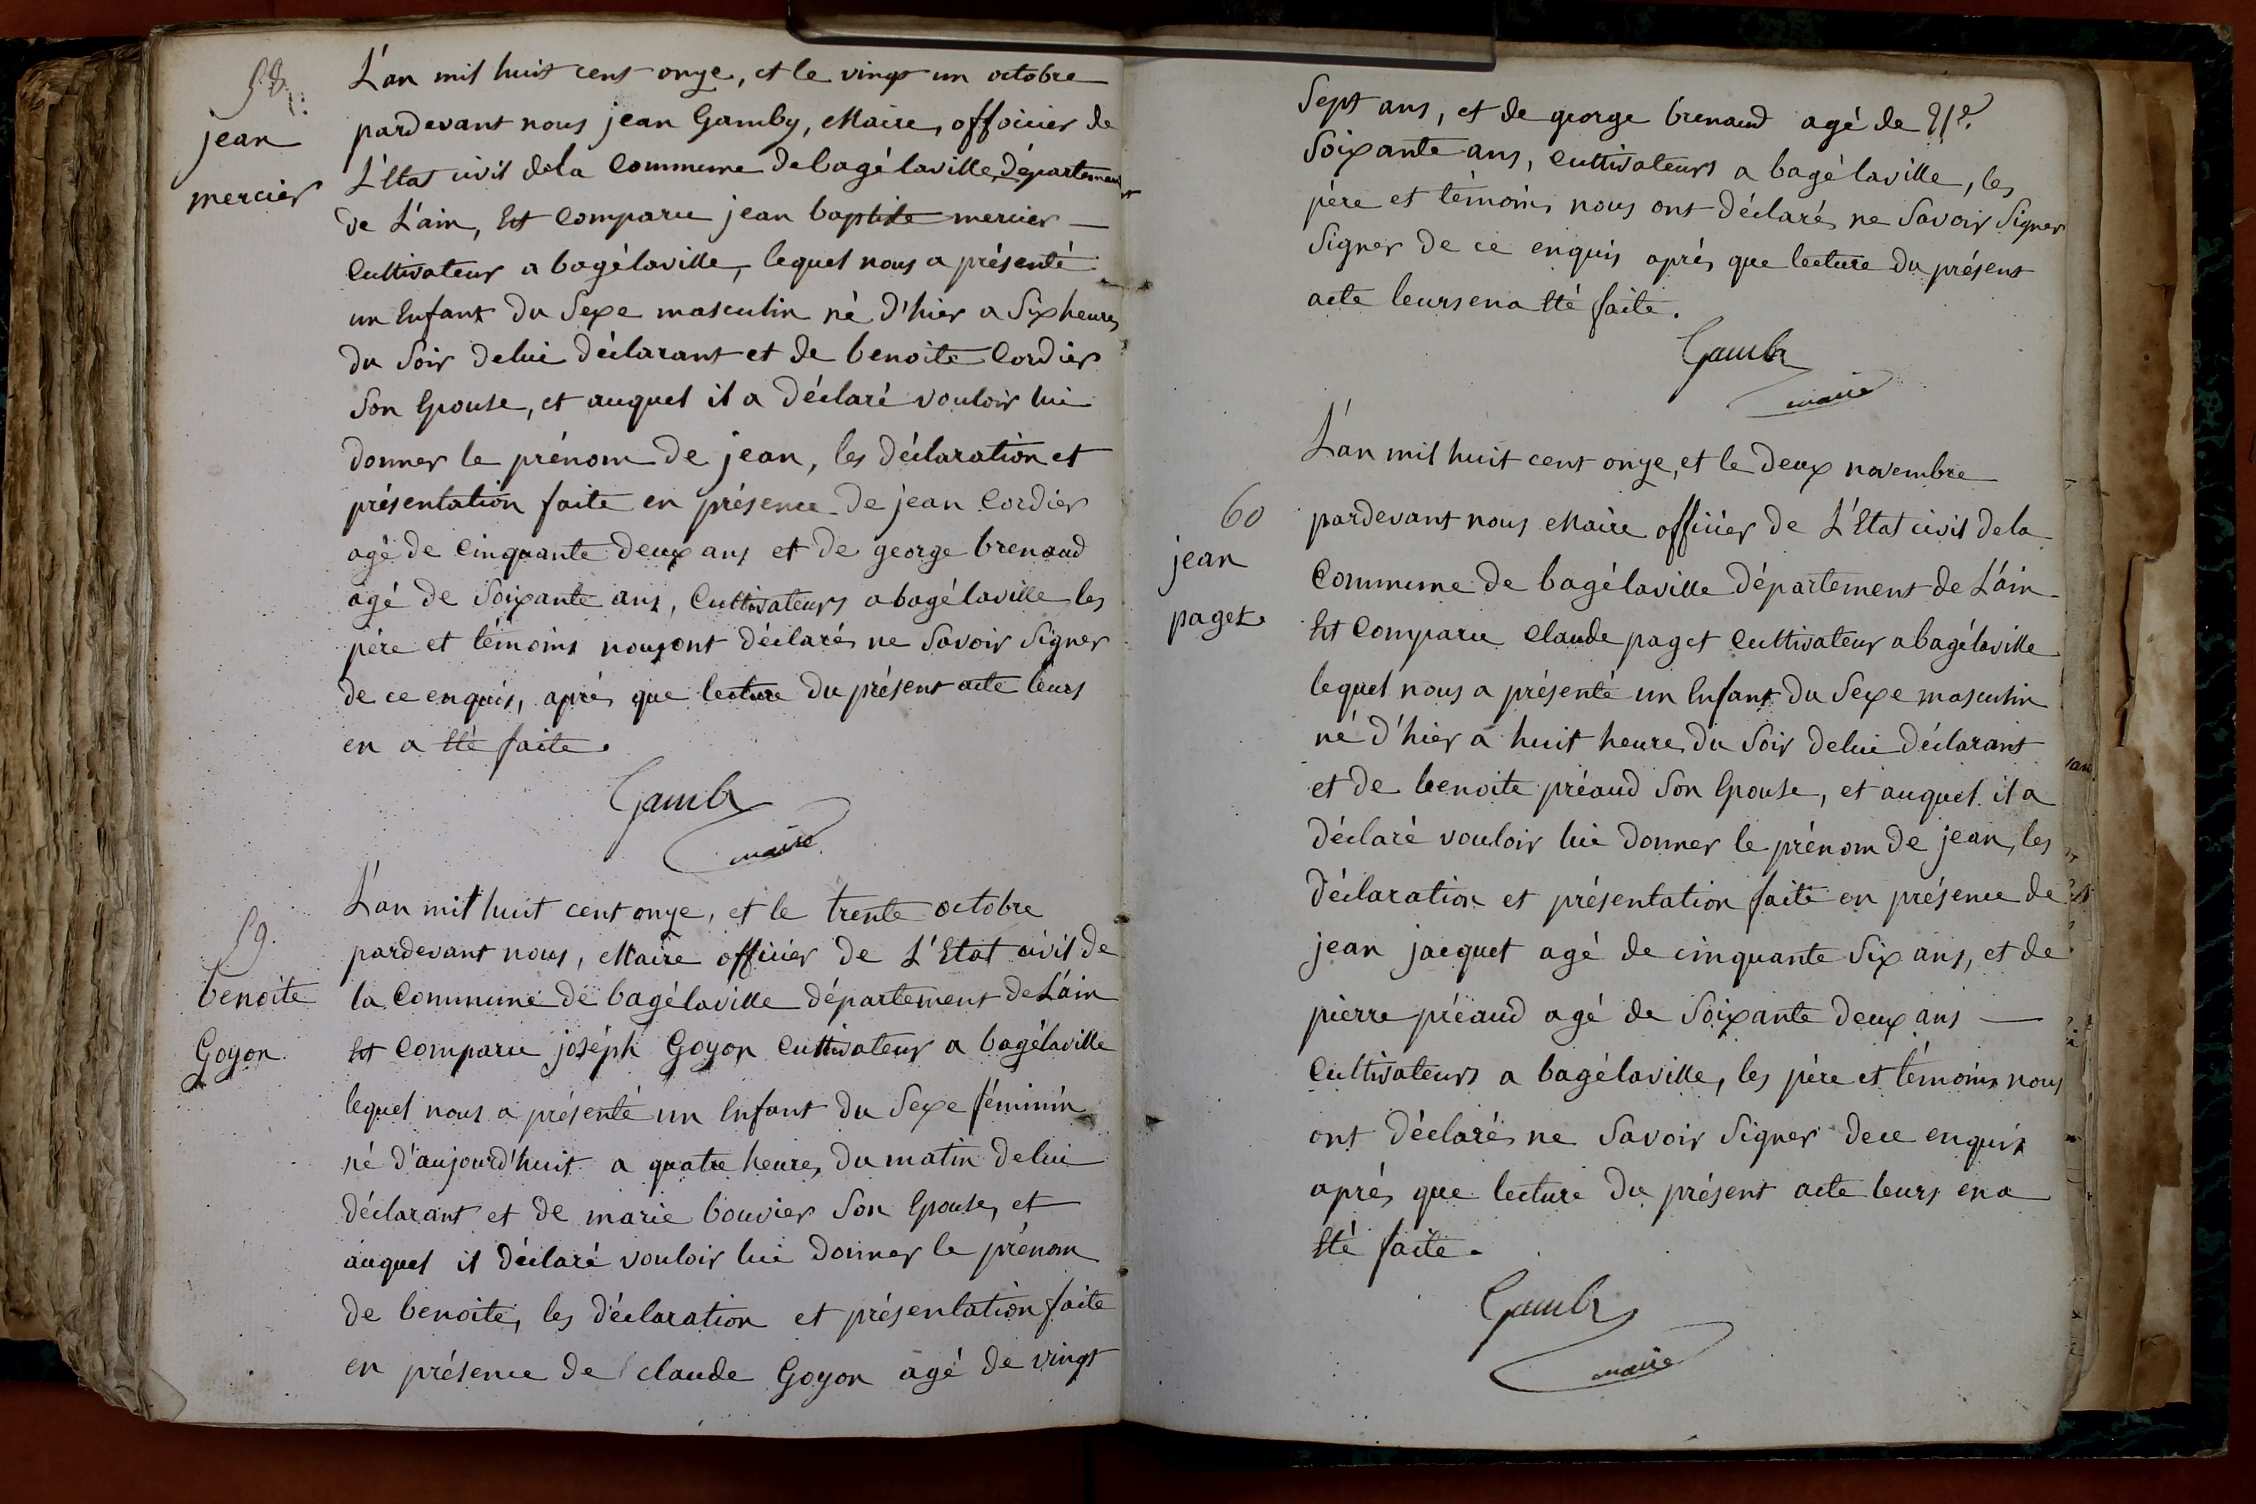 58.
jean
mercier
L'an mil huit cent onze, et le vingt un octobre
pardevant nous jean Gamby, Maire, officier de
L'Etat civil dela Commune de bagélaville, département
de L'ain, Est Comparu jean baptiste mercier
Cultivateur a bagélaville, lequel nous a présenté
un Enfant du Sexe masculin né d'hier a Six heures
du Soir delui déclarant et de benoite Cordier
Son Epouse, et auquel il a déclaré vouloir lui
donner le prénom de jean, les déclaration et
présentation faite en présence de jean Cordier
agé de Cinquante deux ans et de george brenaud
agé de Soixante ans, Cultivateurs a bagélaville les
père et témoins nous ont déclarés ne Savoir Signer
de ce enquis, après que lecture du présent acte leurs
en a Eté faite.
Gamby
maire
59.
benoite
Goyon
L'an mil huit cent onze, et le trente octobre
pardevant nous, Maire officier de L'Etat civil de
la Commune de bagélaville département de L'ain
Est Comparu joséph Goyon Cultivateur a bagélaville
lequel nous a présenté un Enfant du Sexe féminin
né d'aujourd'huit a quatre heures du matin delui
déclarant et de marie bouvier Son Epouse, et
auquel il déclaré vouloir lui donner le prénom
de benoite, les déclaration et présentation faite
en présence de claude Goyon agé de vingt
Sept ans, et de george brenaud agé de
Soixante ans, Cultivateurs a bagélaville, les
père et témoins nous ont déclarés ne Savoir Signer
Signer de ce enquis après que lecture du présent
acte leurs en a Eté faite.
Gamby
maire
60
jean
paget
L'an mil huit cent onze, et le deux novembre
pardevant nous Maire officier de L'Etat civil dela
Commune de bagélaville département de L'ain
Est Comparu Claude paget Cultivateur a bagélaville
lequel nous a présenté un Enfant du Sexe masculin
né d'hier a huit heures du Soir delui déclarant
et de benoite préaud Son Epouse, et auquel il a
déclaré vouloir lui donner le prénom de jean, les
déclaration et présentation faite en présence de
jean jacquet agé de cinquante Six ans, et de
pierre préaud agé de Soixante deux ans
Cultivateurs a bagélaville, les père et témoins nous
ont déclarés ne Savoir Signer dece enquis
après que lecture du présent acte leurs en a
Eté faite.
Gamby
maire